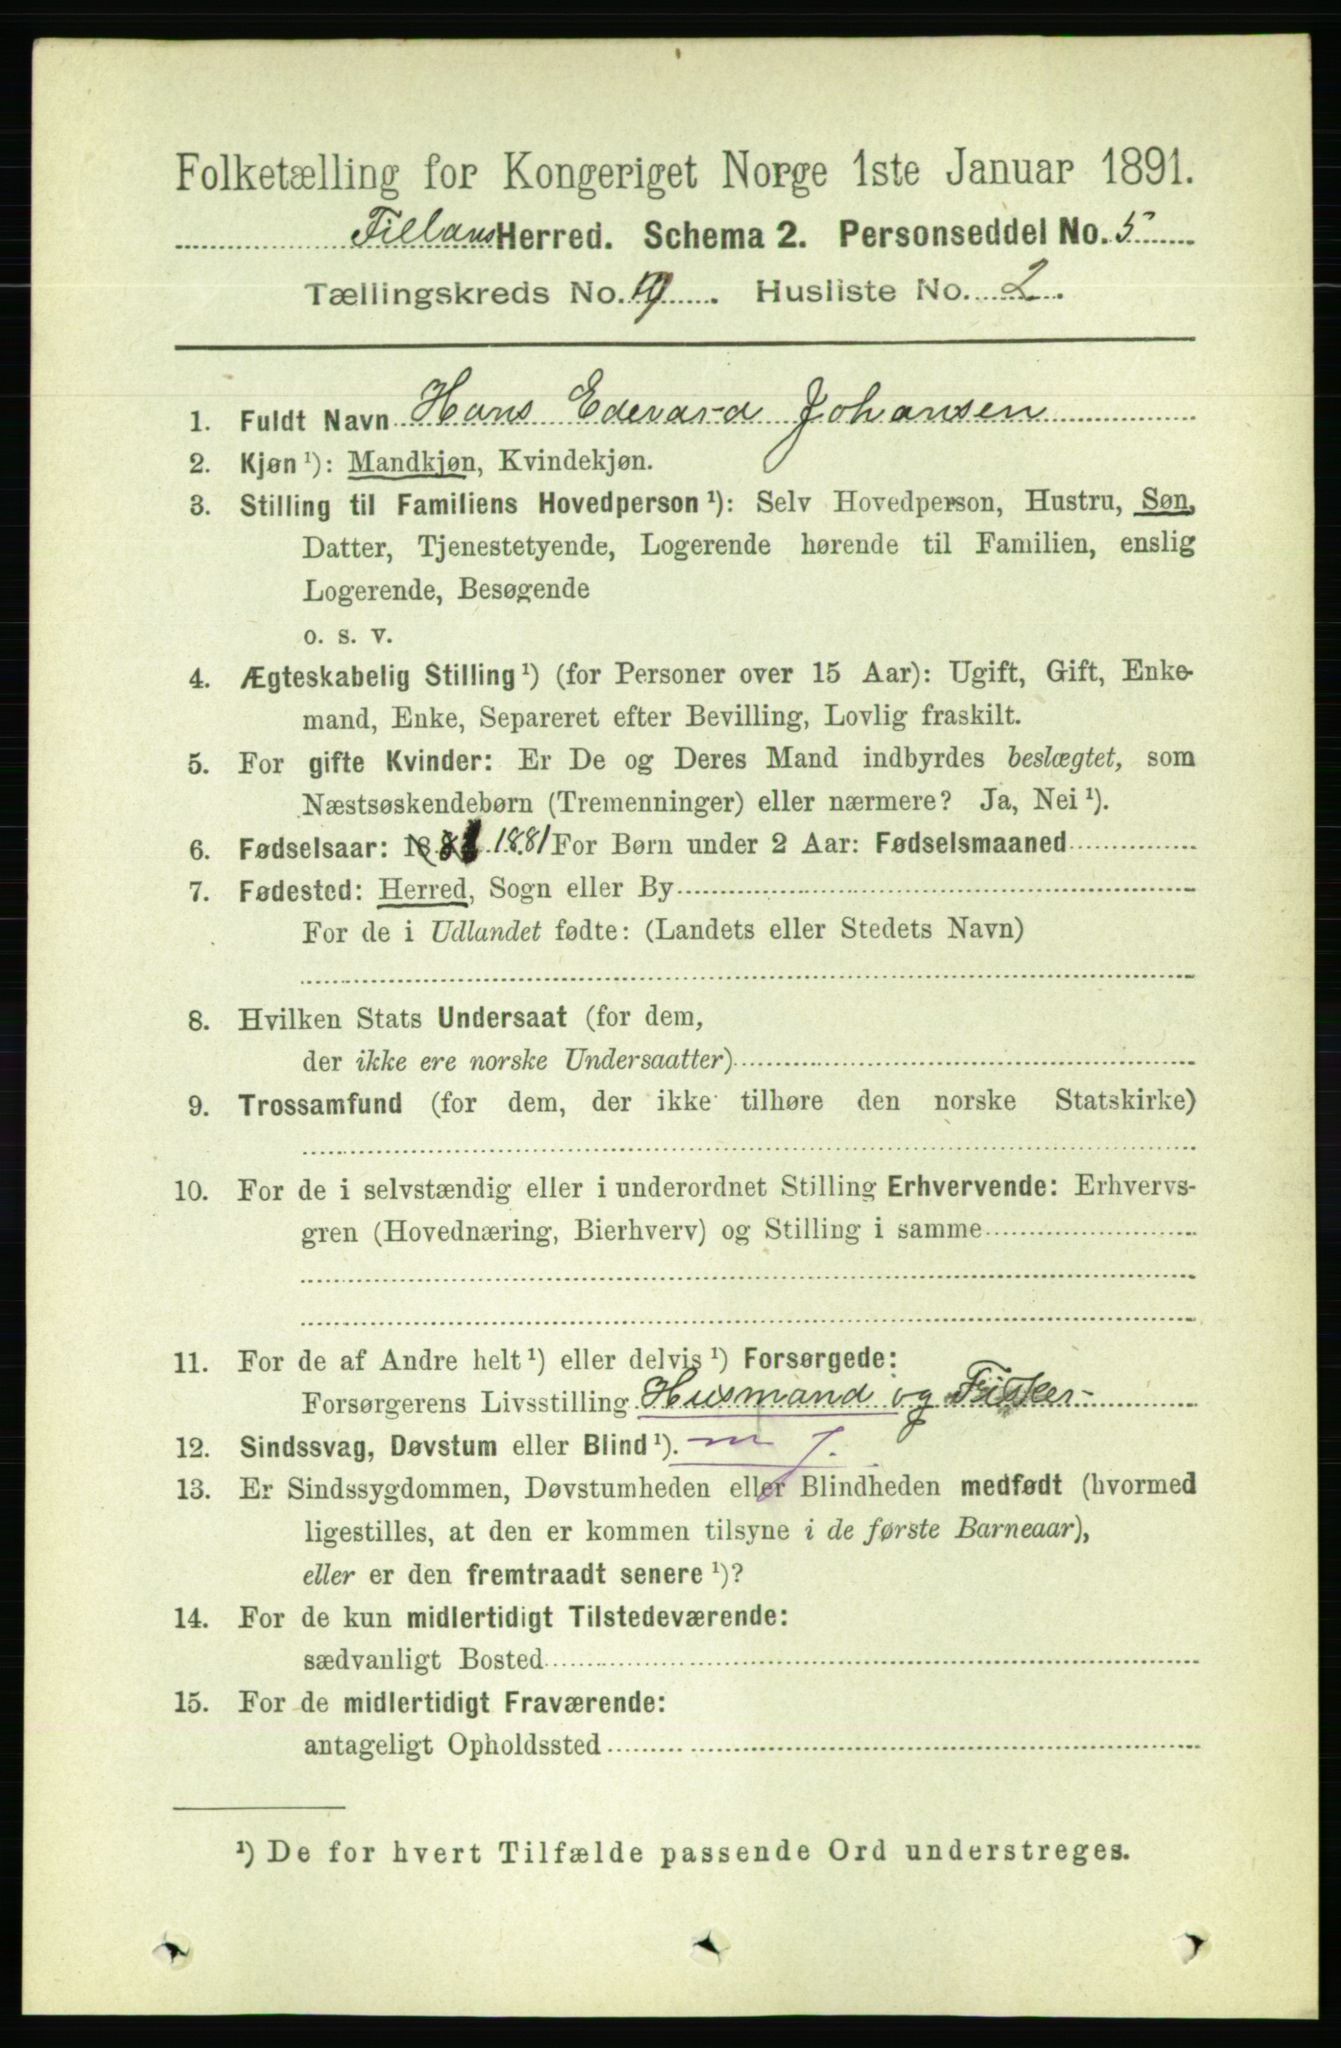 Folketælling for Kongeriget Norge 1ste Januar 1891.
Fillans Herred. Schema 2. Personseddel No. 5
Tællingskreds No. Husliste No. 2.
1. Fuldt Navn Hans Edevard Johansen
2. Kjøn ¹): Mandkjøn, Kvindekjøn.
3. Stilling til Familiens Hovedperson ¹): Selv Hovedperson, Hustru, Søn,
Datter, Tjenestetyende, Logerende hørende til Familien, enslig
Logerende, Besøgende
o. s. v.
4. Ægteskabelig Stilling ¹) (for Personer over 15 Aar): Ugift, Gift, Enke-
mand, Enke, Separeret efter Bevilling, Lovlig fraskilt.
5. For gifte Kvinder: Er De og Deres Mand indbyrdes beslægtet, som
Næstsøskendebørn (Tremenninger) eller nærmere? Ja, Nei ¹).
6. Fødselsaar: 1881 For Børn under 2 Aar: Fødselsmaaned
7. Fødested: Herred, Sogn eller By
For de i Udlandet fødte: (Landets eller Stedets Navn)
8. Hvilken Stats Undersaat (for dem,
der ikke ere norske Undersaatter)
9. Trossamfund (for dem, der ikke tilhøre den norske Statskirke)
10. For de i selvstændig eller i underordnet Stilling Erhvervende: Erhvervs-
gren (Hovednæring, Bierhverv) og Stilling i samme
11. For de af Andre helt ¹) eller delvis ¹) Forsørgede:
Forsørgerens Livsstilling Husmand og Fisker
12. Sindssvag, Døvstum eller Blind ¹).
13. Er Sindssygdommen, Døvstumheden eller Blindheden medfødt (hvormed
ligestilles, at den er kommen tilsyne i de første Barneaar),
eller er den fremtraadt senere ¹)?
14. For de kun midlertidigt Tilstedeværende:
sædvanligt Bosted
15. For de midlertidigt Fraværende:
antageligt Opholdssted
¹) De for hvert Tilfælde passende Ord understreges.